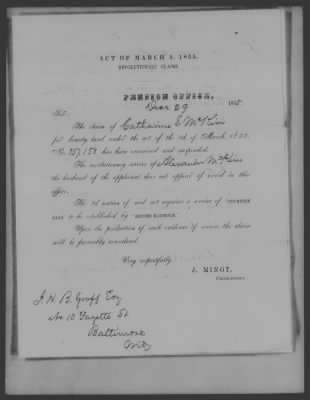 ACT OF MARCH 3, 1855.
REVOLUTIONARY CLAIMS
PENSION OFFICE,
Decr 29 1855
Sir
The claim of Catharine E McKim
for bounty land under the act of the 3d of March, 1855,
No. 157,158 has been examined and suspended.
The revolutionary service of Alexander McKim
the husband of the applicant does not appear of record in this
office.
The 3d section of said act requires a service of "FOURTEEN
DAYS" to be established by "RECORD EVIDENCE."
Upon the production of such evidence of service, the claim
will be favorably considered.
Very respectfully
J. MINOT,
Commissioner.
J. H. B. Esq
No 10 Fayette St
Baltimore
Md